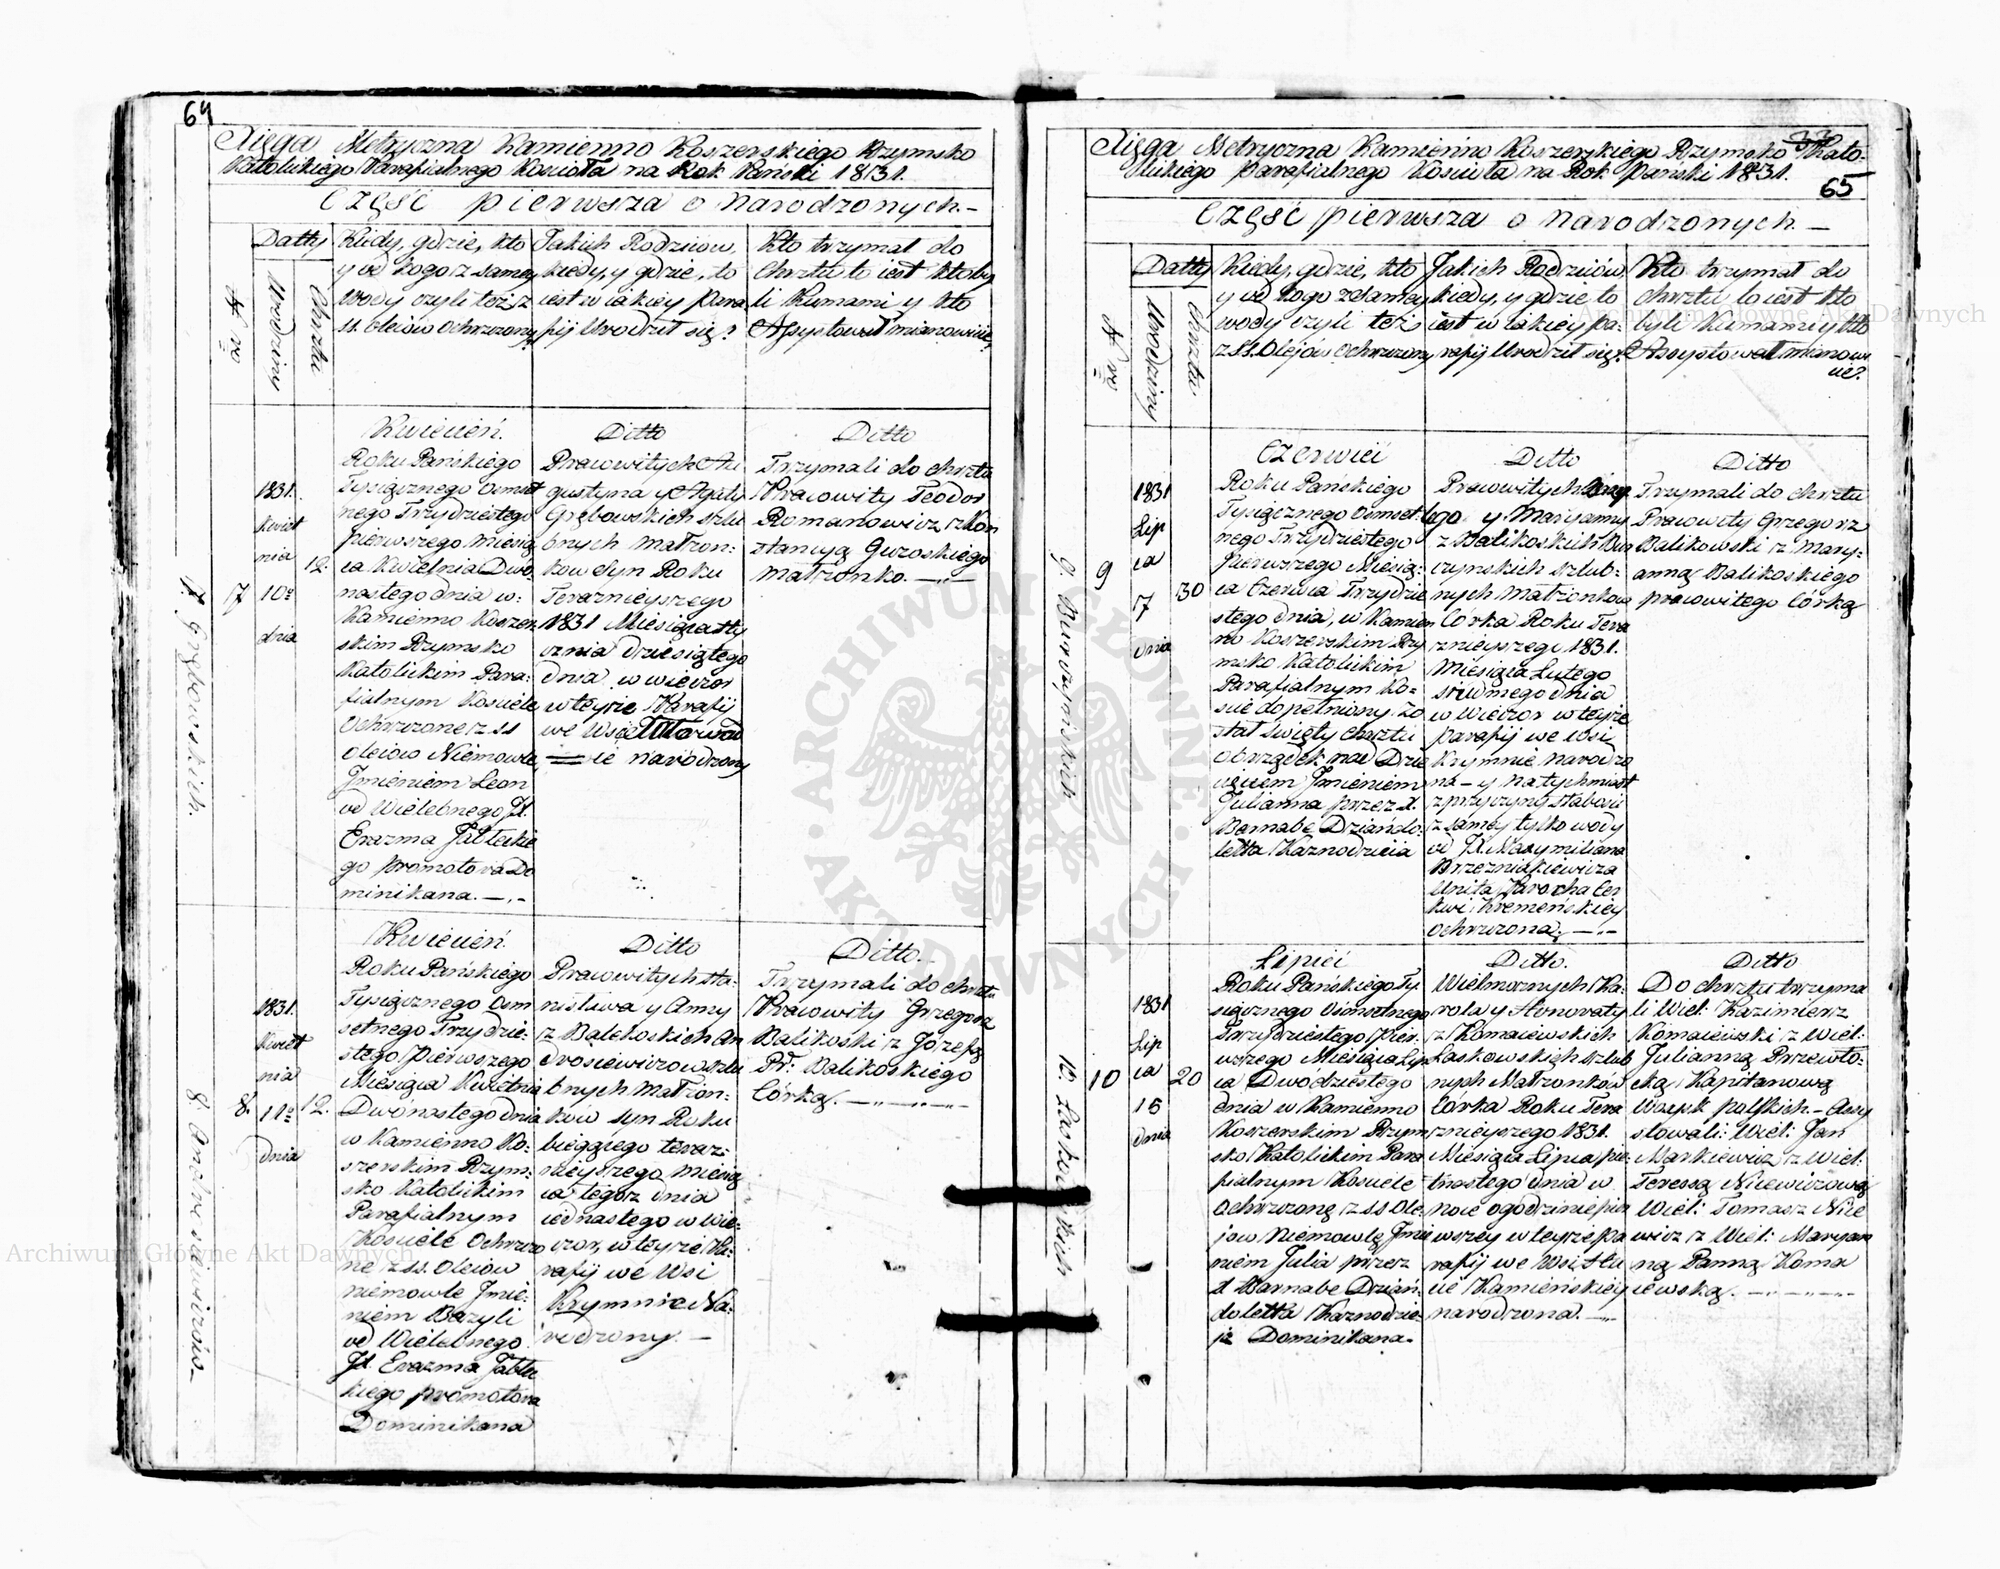 64
Xięga Metryczna Kamienno Koszerskiego Rzymsko
Katolickiego Parafialnego Kosciola na Rok Pański 1831.
Część pierwsza o narodzonych.-
Datty
Urodziny
Chrztu
Kiedy, gdzie, kto
y od kogo z samey
wody czyli też z
SS. Olejow Ochrzczony?
Jakich Rodziców,
kiedy, y gdzie, to
iest w iakiey Para
fij Urodził się?
Kto trzymał do
Chrztu to iest kto by
li Kumami y kto
Assystował mianowicie?
7. Grębowskich.
7
1831.
Kwiet
nia
10o
dnia
12.
Kwiecień.
Roku Pańskiego
Tysiącznego Osmset
nego Trzydziestego
pierwszego Miesią
ca Kwietnia Dwo
nastego dnia w
Kamienno Koszer
skim Rzymsko
Katolickim Para
fialnym Kosciele
Ochrzczone z SS
Olejow Niemowle,
Jmieniem Leon
od Wielebnego JX.
Erazma Jableckie
go promotora Do
minikana.
Ditto
Pracowitych Au
gustyna y Agaty
Grębowskich szlu
bnych Matron:
kow Syn Roku
Teraznieyszego
1831 Miesiąca
dziesiątego
dnia w wieczor
w teyże Parafij
we Wsi
narodzony
Ditto
Trzymali do chrztu
Pracowity Teodor
Romanowicz z Kon
stancyą Guroskiego
Matronko.
8. Androsiewiczow.
8.
1831.
Kwiet
nia
11o
dnia
12.
Kwiecień.
Roku Pańskiego
Tysiącznego Osm
setnego Trzydzie-
stego Pierwszego
Miesiąca Kwietnia
Dwonastego dnia
w Kamienno Ko:
szerskim Rzym:
sko Katolickim
Parafialnym
Kosciele Ochrzczo
ne z SS. Olejow
niemowle Jmie:
niem Bazyli
od Wielebnego
JX. Erazma Jable
ckiego promotora
Dominikana
Ditto
Pracowitych Sta:
nisława y Anny
z Balikoskich An
drosiewiczow szlu
bnych Matron:
kow Syn Roku
bieggiego teraz:
nieyszego Miesią
ca tegoż dnia
iednastego w Wie:
czor, w teyże Pa:
rafij we Wsi
Krymnie Na:
rodzony. —
Ditto.
Trzymali do chrztu
Pracowity Grzegorz
Balikoski z Józefą
Balikoskiego
Córką.
65
Xięga Metryczna Kamienno Koszerskiego Rzymsko Kato-
lickiego Parafialnego Kosciola na Rok Pański 1831.
Część pierwsza o narodzonych. —
Datty
Urodziny
Chrztu
Kiedy, gdzie, kto
y od kogo z samey
wody czyli też
z SS. Olejów Ochrzczony
Jakich Rodziców
kiedy, y gdzie to
iest w iakiey Pa:
rafij Urodził się?
Kto trzymał do
Chrztu to iest kto
byli Kumami y kto
Assystował mianowi
cie?
9. Burczyńskich
9
1831
Lip
ca
7
dnia
30
Czerwiec
Roku Pańskiego
Tysiącznego Osmset
nego Trzydziestego
Pierwszego Miesią:
ca Czerwca Trzydzie
stego dnia, w Kamien
no Koszerskim Rzy
msko Katolickim
Parafialnym Ko:
sciele dopełniony zo
stał święty chrztu
Obrządek nad Dzie
cięciem Jmieniem
Julianna przez X.
Barnabe Dziando
letta Kaznodzieia
Ditto
Pracowitych
y Maryanny
z Balikoskich Bur
czynskich szlub:
nych Matronkow
Córka Roku Tera
znieyszego 1831.
Miesiąca Lutego
siudmego dnia
w Wieczor w teyże
parafij we Wsi
Krymnie narodzo
na — y natychmiast
z przyczyny słabosci
z samey tylko wody
od JX. Maxymiliana
Brzezniakiewicza
Unita Parocha Cer
kwi Kremeńskiey
Ochrzczona.
Ditto
Trzymali do chrztu
Pracowity Grzegorz
Balikowski z Mary-
anną Balikoskiego
pracowitego Córką
10. Laskowskich
10
1831
Lip
ca
15
dnia
20
Lipiec
Roku Pańskiego Ty
siącznego Osmsetnego
Trzydziestego Pier
wszego Miesiąca Lip
ca Dwódziestego
dnia w Kamienno
Koszerskim Rzym
sko Katolickim Para
fialnym Kosciele
Ochrzczoną z SS Ole
jow Niemowlę Jmie
niem Julia przez
X Barnabe Dzian
doletta Kaznodzie-
ją Dominikana.
Ditto.
Wielmożnych Ka
rola y Honoraty
z Komaiewskich
Laskowskich szlub
nych Matronków
Córka Roku Tera
znieyszego 1831.
Miesiąca Lipca pie
tnastego dnia w
nocy o godzinie pier
wszey w teyże pa
rafij we Wsi Hu
cie Kamieńskiey
narodzona.
Ditto
Do chrztu trzyma
li Wiel: Kazimierz
Komaiewski z Wiel:
Julianną Przewło-
cką Kapitanową
Woysk polskich. — Assy
stowali: Wiel: Jan
Markiewicz z Wiel:
Teressą Niewiczową
Wiel: Tomasz Nie
wicz z Wiel: Maryan
ną Panną Koma
iewską.
ARCHIWUM GŁÓWNE AKT DAWNYCH
Archiwum Główne Akt Dawnych
Archiwum Główne Akt Dawnych